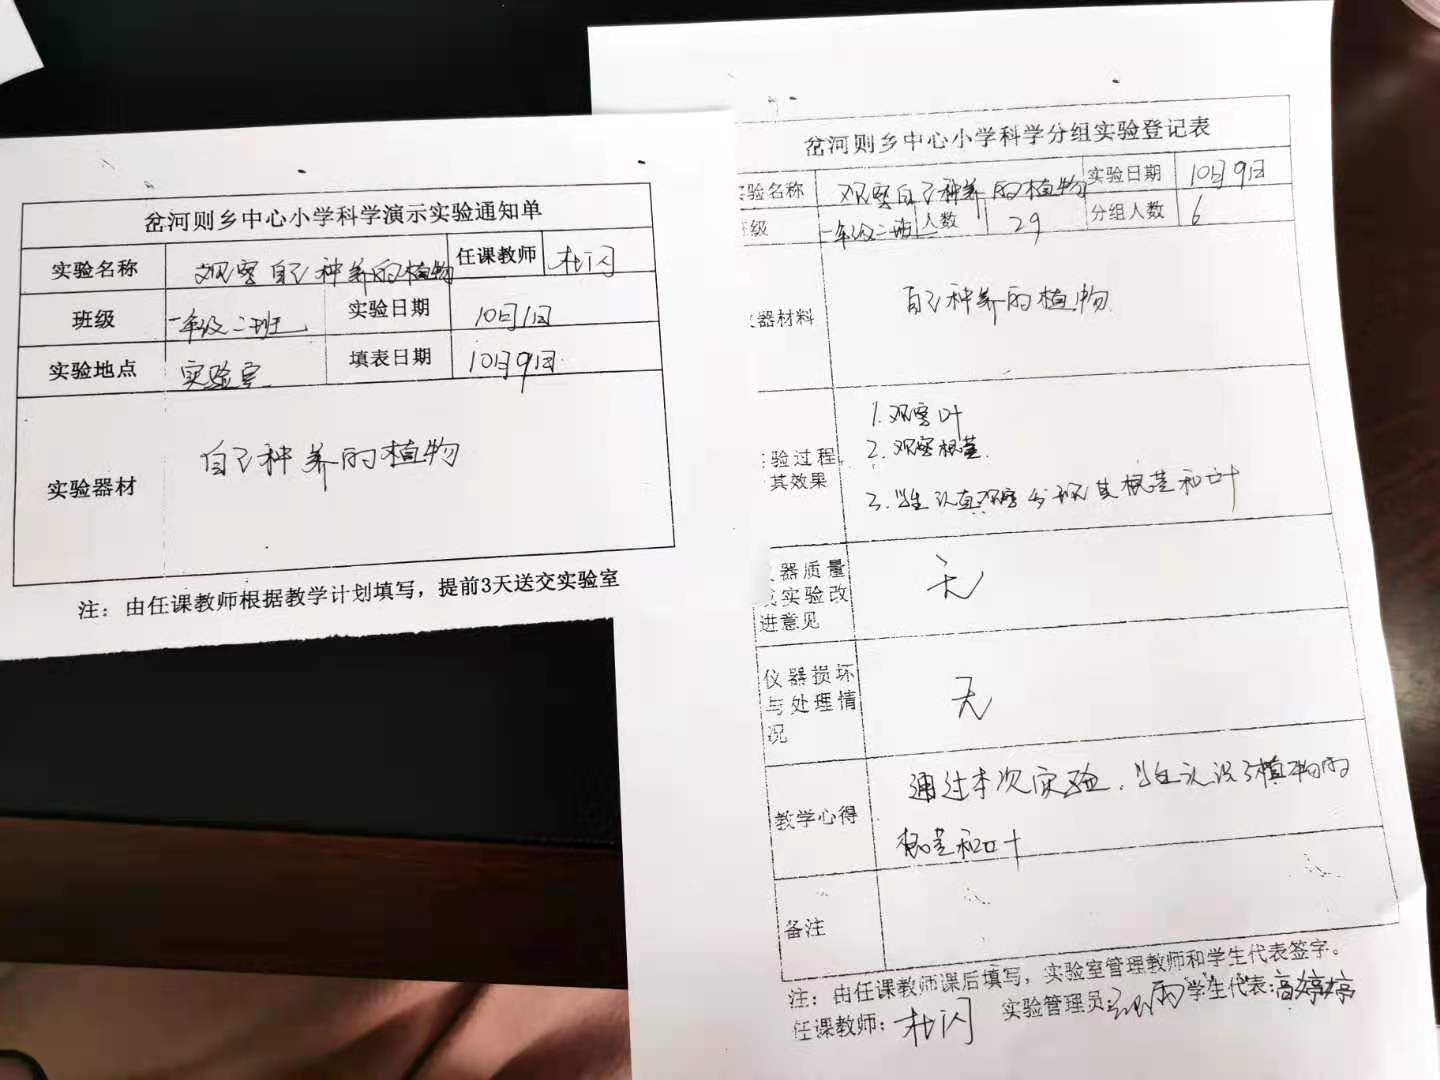 岔河则乡中心小学科学演示实验通知单
实验名称 观察自己种养的植物 任课教师 杜闪
班级 一年级二班 实验日期 10月1日
实验地点 实验室 填表日期 10月9日
实验器材 自己种养的植物
注：由任课教师根据教学计划填写，提前3天送交实验室
岔河则乡中心小学科学分组实验登记表
验名称 观察自己种养的植物 实验日期 10月9日
级 一年级二班 人数 29 分组人数 6
器材料 自己种养的植物
1.观察叶
2.观察根茎.
验过程
其效果
3.学生认真观察发现其根茎和叶
器质量
实验改
进意见
无
仪器损坏
与处理情
况
无
教学心得
通过本次实验，学生认识了植物的
根茎和叶
备注
注：由任课教师课后填写，实验室管理教师和学生代表签字。
任课教师：杜闪 实验管理员： 学生代表：高婷婷